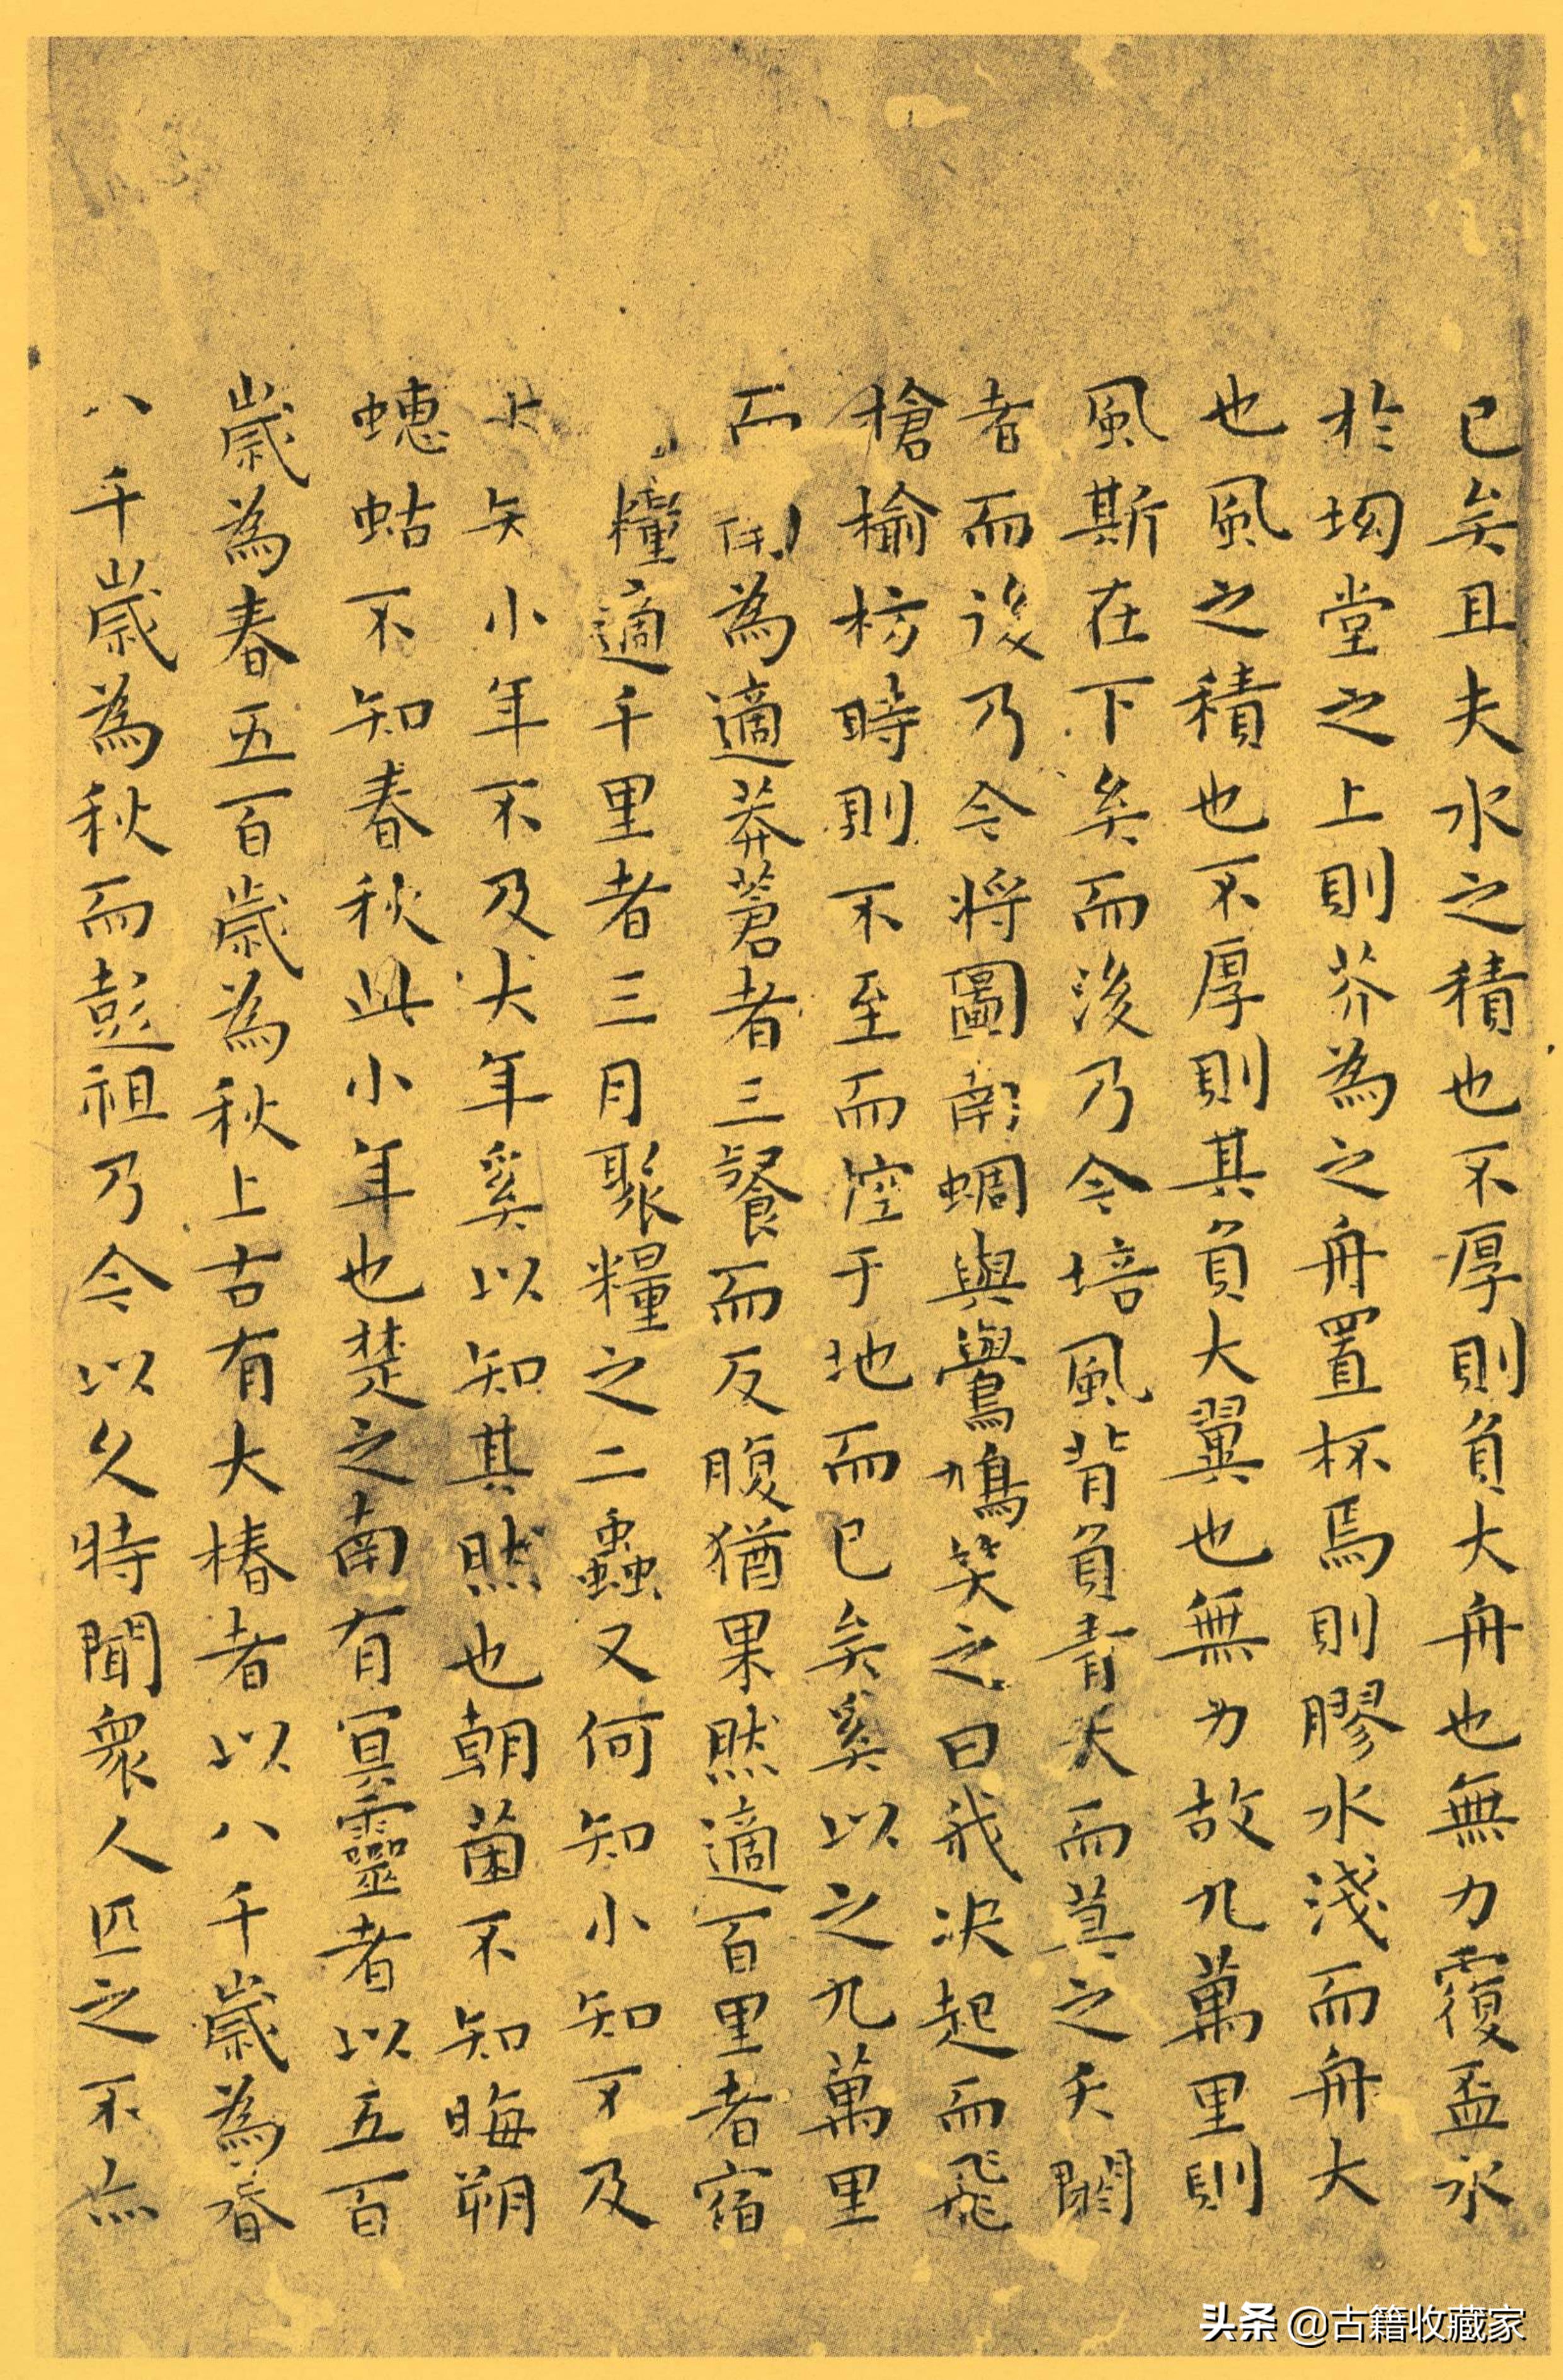 已矣且夫水之積也不厚則負大舟也無力覆盃水
於坳堂之上則芥為之舟置杯焉則膠水淺而舟大
也風之積也不厚則其負大翼也無力故九萬里則
風斯在下矣而後乃今培風背負青天而莫之夭閼
者而後乃今將圖南蜩與鷽鳩笑之曰我決起而飛
槍榆枋時則不至而控于地而已矣奚以之九萬里
而為適莽蒼者三飡而反腹猶果然適百里者宿
糧適千里者三月聚糧之二蟲又何知小知不及
大知小年不及大年奚以知其然也朝菌不知晦朔
蟪蛄不知春秋此小年也楚之南有冥靈者以五百
歲為春五百歲為秋上古有大椿者以八千歲為春
八千歲為秋而彭祖乃今以久特聞衆人匹之不亦
頭条 @古籍收藏家